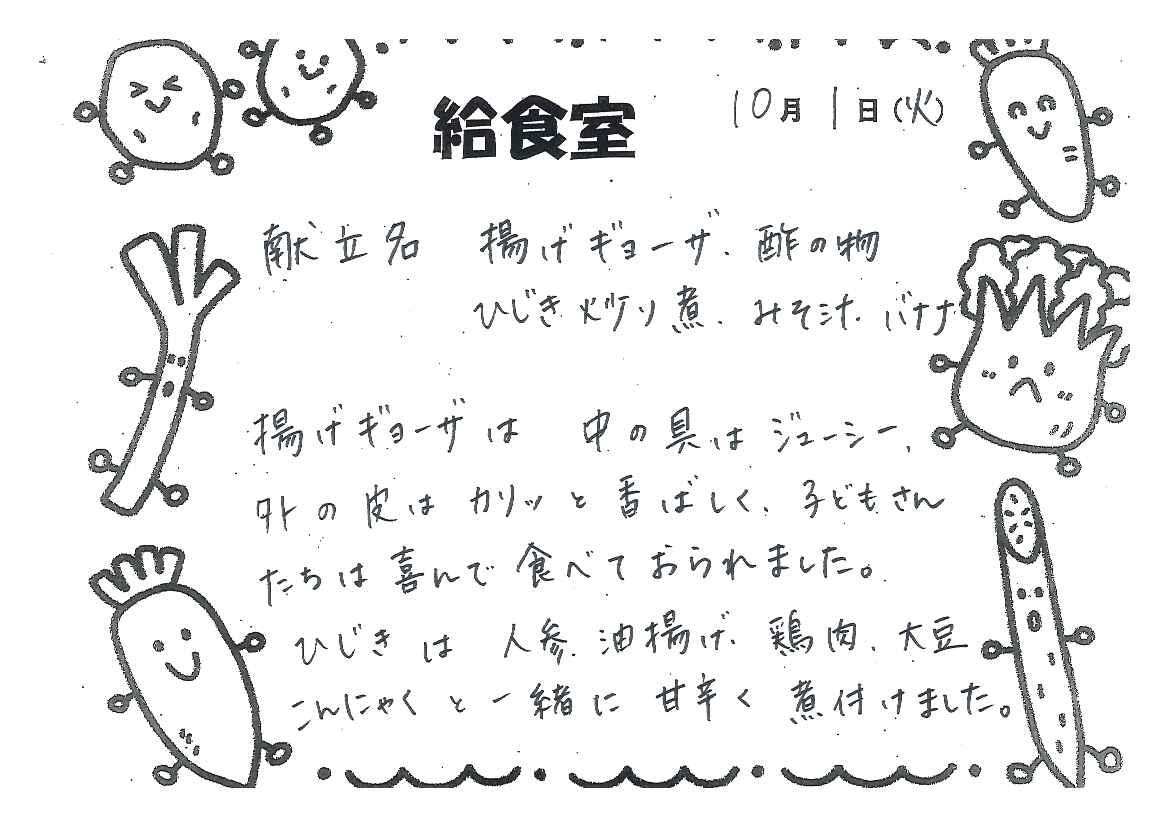 給食室
10月1日(火)
献立名 揚げギョーザ、酢の物
ひじき炒り煮、みそ汁、バナナ
揚げギョーザは 中の具はジューシー、
外の皮は カリッと香ばしく、子どもさん
たちは喜んで食べておられました。
ひじきは 人参、油揚げ、鶏肉、大豆
こんにゃくと一緒に甘辛く煮付けました。